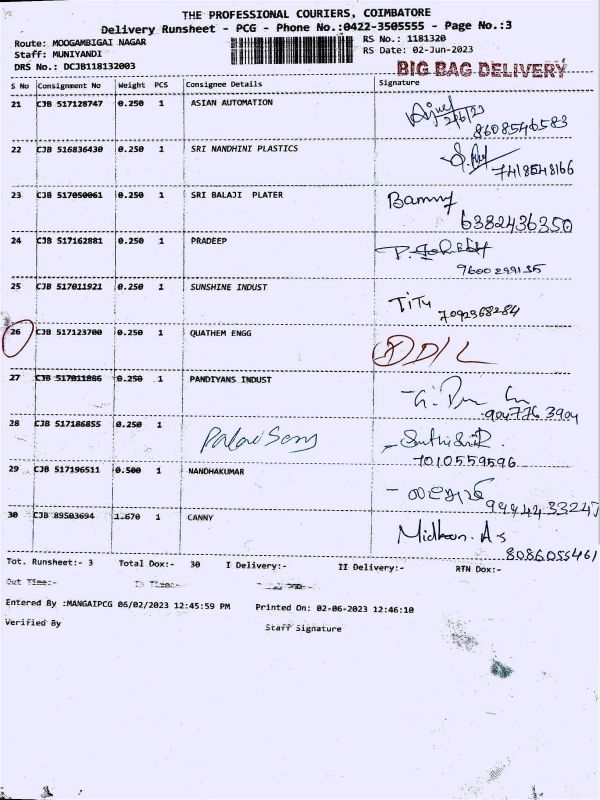 THE PROFESSIONAL COURIERS, COIMBATORE
Delivery Runsheet - PCG - Phone No.:0422-3505555 - Page No.:3
Route: MOOGAMBIGAI NAGAR
RS No.: 1181320
Staff: MUNIYANDI
RS Date: 02-Jun-2023
DRS No.: DCJB118132003
BIG BAG DELIVERY
S No Consignment No Weight PCS Consignee Details Signature
21 CJB 517128747 0.250 1 ASIAN AUTOMATION
2/6/23
8608546583
22 CJB 516836430 0.250 1 SRI NANDHINI PLASTICS
7418548166
23 CJB 517050061 0.250 1 SRI BALAJI PLATER
6382436350
24 CJB 517162881 0.250 1 PRADEEP
9600299135
25 CJB 517011921 0.250 1 SUNSHINE INDUST
TITU
7092368284
26 CJB 517123700 0.250 1 QUATHEM ENGG
D/L
27 CJB 517011886 0.250 1 PANDIYANS INDUST
9047763904
28 CJB 517186855 0.250 1
7010559596
29 CJB 517196511 0.500 1 NANDHAKUMAR
9944433247
30 CJB 89503694 1.670 1 CANNY
Midhun. A.s
8086055461
Tot. Runsheet:- 3 Total Dox:- 30 I Delivery:- II Delivery:- RTN Dox:-
Out Time:- In Time:-
Entered By :MANGAIPCG 06/02/2023 12:45:59 PM Printed On: 02-06-2023 12:46:10
Verified By Staff Signature